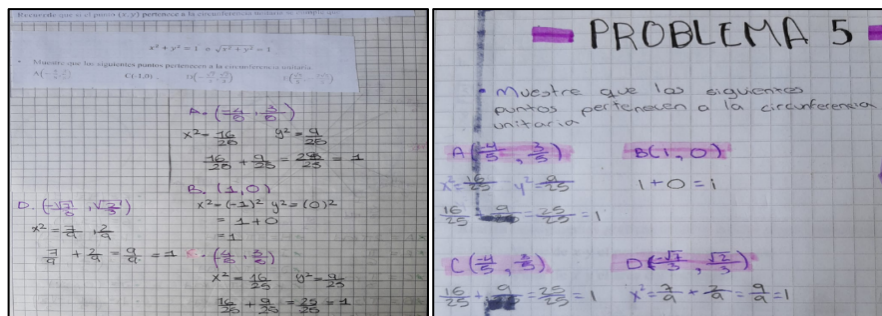 Recuerde que si el punto (x, y) pertenece a la circunferencia unitaria se cumple que
x² + y² = 1 o √x² + y² = 1
Muestre que los siguientes puntos pertenecen a la circunferencia unitaria
C(-1,0)
A. (-4/5, 3/5)
x² = 16/25 y² = 9/25
16/25 + 9/25 = 25/25 = 1
B. (1, 0)
x² = (-1)² y² = (0)²
= 1 + 0
= 1
(4/5, 3/5)
x² = 16/25 y² = 9/25
16/25 + 9/25 = 25/25 = 1
D. (-√7/3, √2/3)
x² = 7/9, 2/9
7/9 + 2/9 = 9/9 = 1
PROBLEMA 5
Muestre que los siguientes
puntos pertenecen a la circunferencia
unitaria
A(-4/5, 3/5) B(1, 0)
x² = 16/25 y² = 9/25 1 + 0 = 1
16/25 9/25 = 25/25 = 1
C(-4/5, 3/5) D(-√7/3, √2/3)
16/25 + 9 = 25/25 = 1 x² = 7/9 + 2/9 = 9/9 = 1